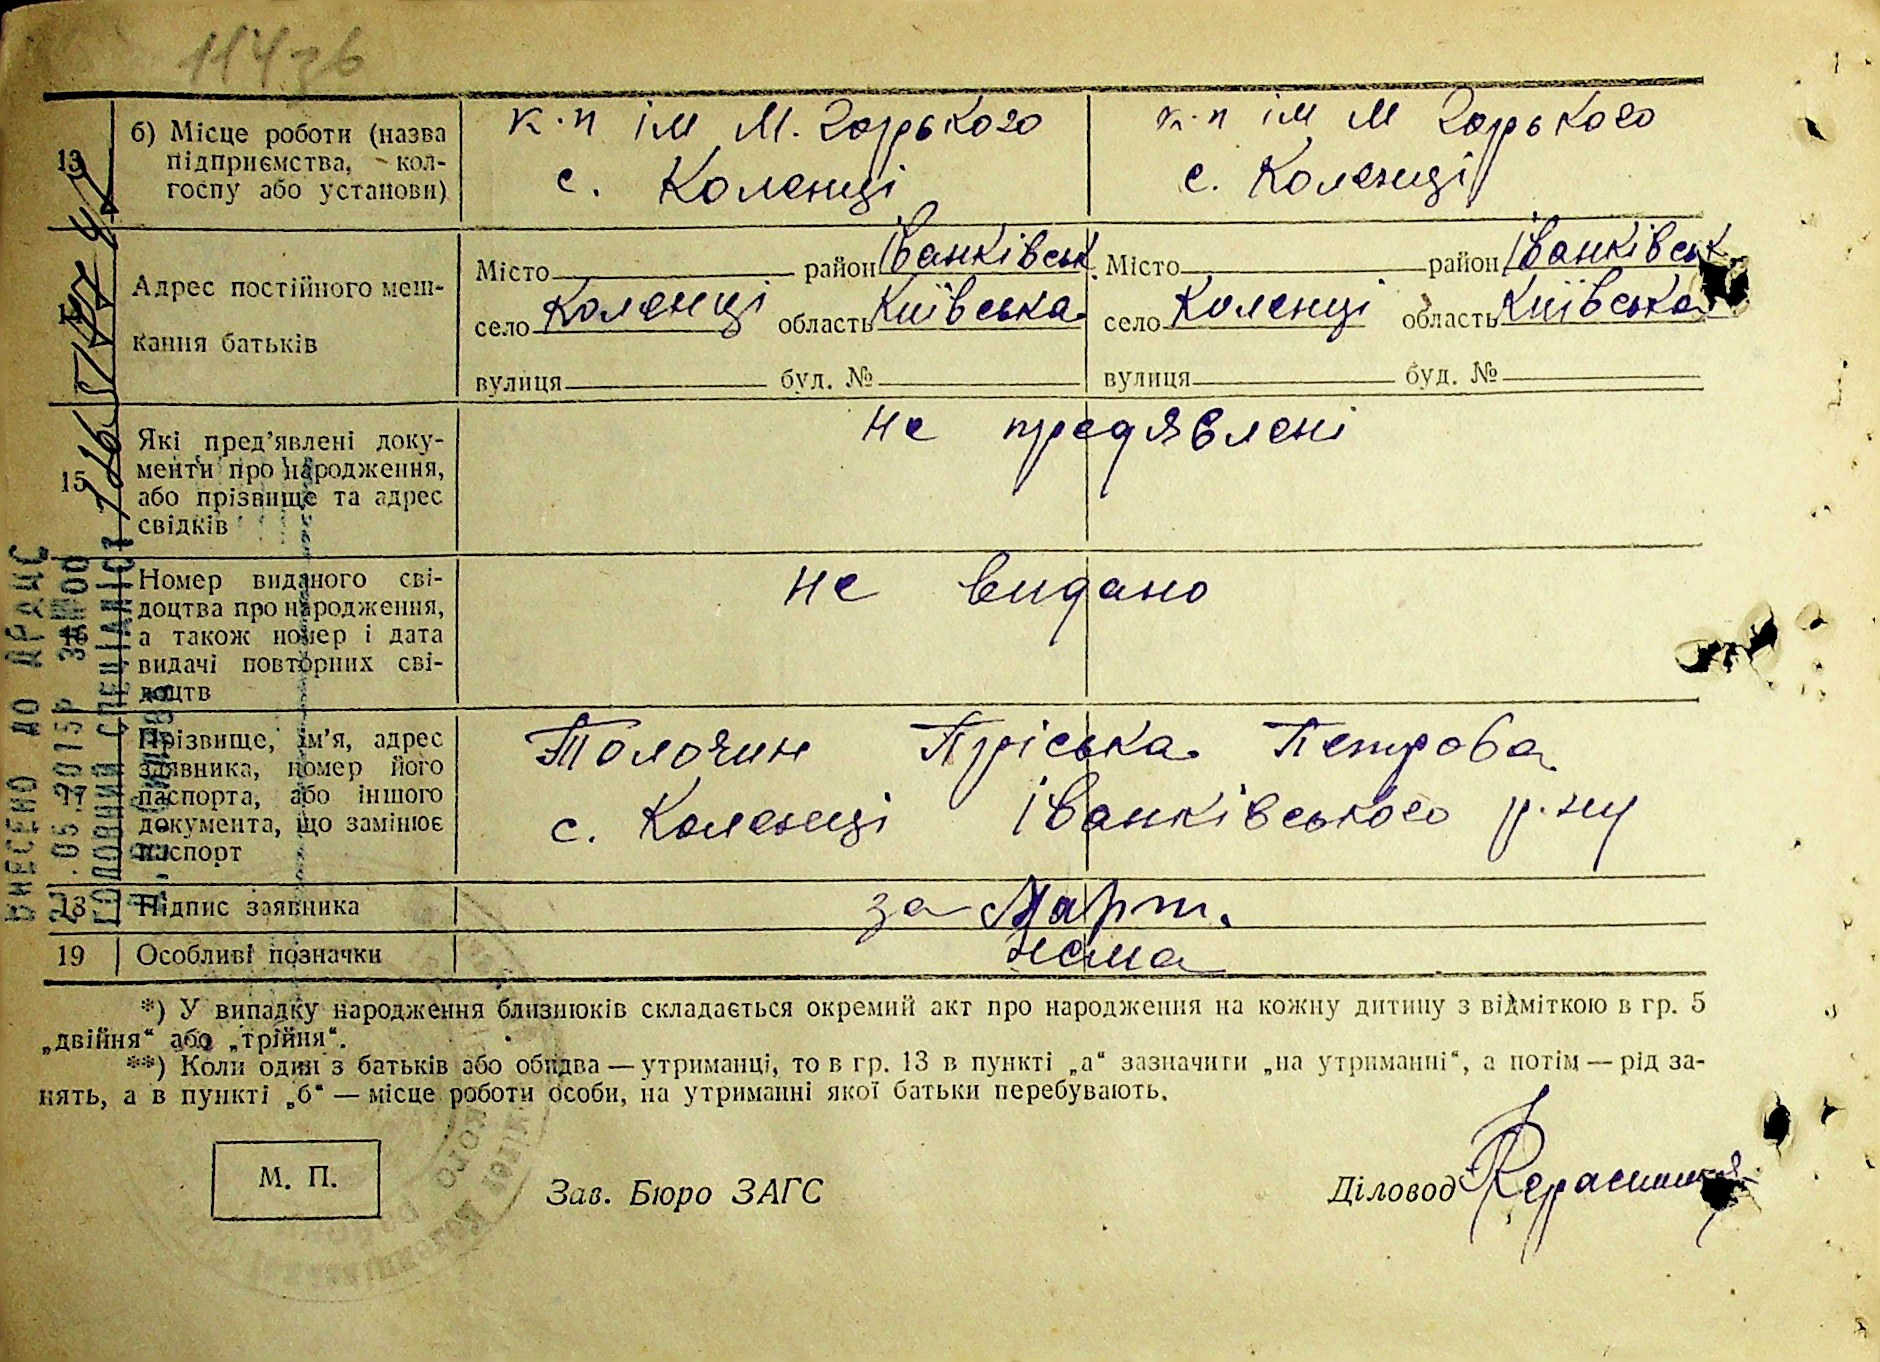 114зв
13
б) Місце роботи (назва
підприємства, кол-
госпу або установи)
к.п ім М. Горького
с. Коленці
к.п ім М Горького
с. Коленці
Адрес постійного меш-
кання батьків
Місто район Іванківськ.
село Коленці область Київська
вулиця буд. №
Місто район Іванківськ
село Коленці область Київська
вулиця буд. №
15
Які пред’явлені доку-
менти про народження,
або прізвище та адрес
свідків
не предявлені
16
Номер виданого сві-
доцтва про народження,
а також номер і дата
видачі повторних сві-
доцтв
не видано
17
Прізвище, ім’я, адрес
заявника, номер його
паспорта, або іншого
документа, що замінює
паспорт
Толочин Пріська Петрова
с. Коленці Іванківського р.ну
18
Підпис заявника
за Март.
19
Особливі позначки
нема
ВНЕСЕНО ДО ДРАЦС
.05.2015р
ГОЛОВНИЙ СПЕЦІАЛІСТ
*) У випадку народження близнюків складається окремий акт про народження на кожну дитину з відміткою в гр. 5
„двійня“ або „трійня“.
**) Коли один з батьків або обидва — утриманці, то в гр. 13 в пункті „а“ зазначити „на утриманні“, а потім — рід за-
нять, а в пункті „б“ — місце роботи особи, на утриманні якої батьки перебувають.
М. П.
Зав. Бюро ЗАГС
Діловод